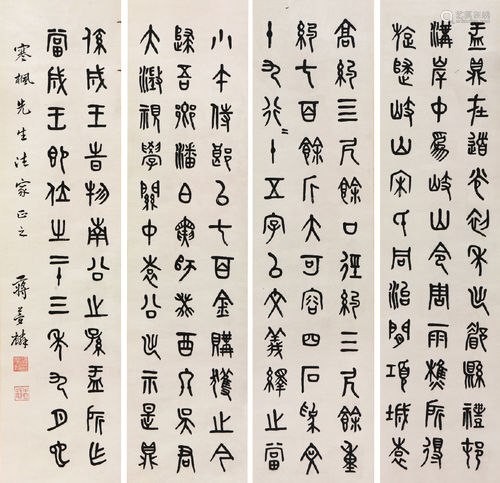 盂鼎在道光初年出郿縣禮邨
溝岸中為岐山令周雨樵所得
旋歸岐山宋氏同治間項城袁
高約三尺餘口徑約三尺餘重
約七百餘斤大可容四石銘文
十九行=十五字以文義繹之當
小午侍郎以七百金購獲之今
歸吾鄉潘白寅師癸酉冬吳君
大澂視學關中袁公出示是鼎
係成王時物南公之孫盂所作
當成王即位之二十三年九月也
寒楓先生法家正之 蔣夢麟